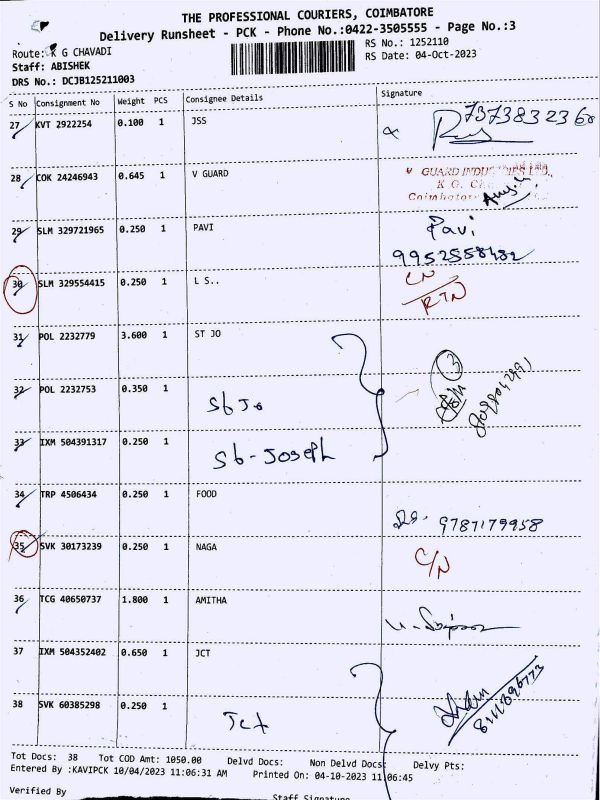 THE PROFESSIONAL COURIERS, COIMBATORE
Delivery Runsheet - PCK - Phone No.:0422-3505555 - Page No.:3
Route: K G CHAVADI
RS No.: 1252110
Staff: ABISHEK
RS Date: 04-Oct-2023
DRS No.: DCJB125211003
S No Consignment No Weight PCS Consignee Details Signature
27 KVT 2922254 0.100 1 JSS 7373832360
28 COK 24246943 0.645 1 V GUARD V GUARD INDUSTRIES LTD.,
K G.
Coimbatore
29 SLM 329721965 0.250 1 PAVI Pavi
9952558482
30 SLM 329554415 0.250 1 L S.. CN
RTN
31 POL 2232779 3.600 1 ST JO 3
32 POL 2232753 0.350 1 St Jo
33 IXM 504391317 0.250 1 St-Joseph
34 TRP 4506434 0.250 1 FOOD 9787179958
35 SVK 30173239 0.250 1 NAGA C/N
36 TCG 40650737 1.800 1 AMITHA
37 IXM 504352402 0.650 1 JCT
38 SVK 60385298 0.250 1 Jct
Tot Docs: 38 Tot COD Amt: 1050.00 Delvd Docs: Non Delvd Docs: Delvy Pts:
Entered By :KAVIPCK 10/04/2023 11:06:31 AM Printed On: 04-10-2023 11:06:45
Verified By Staff Signature